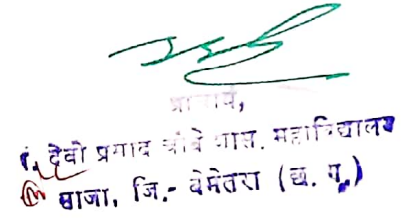 प्राचार्य,
पं. देवी प्रसाद चौबे शास. महाविद्यालय
साजा, जि.- बेमेतरा (छ. ग.)